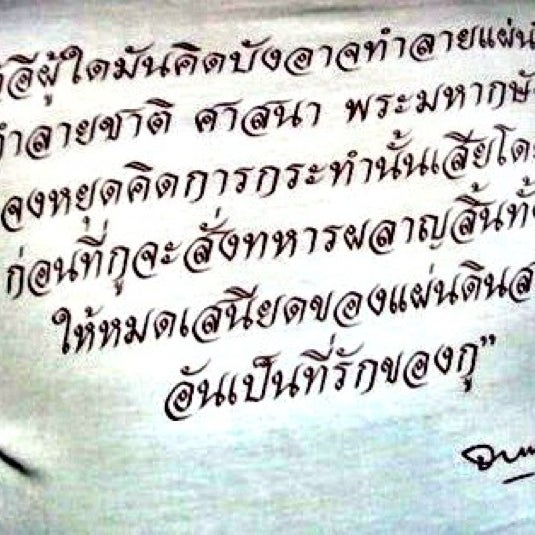 อีผู้ใดมันคิดบังอาจทำลายแผ่น
ทำลายชาติ ศาสนา พระมหากษั
จงหยุดคิดการกระทำนั้นเสียโดย
ก่อนที่กูจะสั่งทหารผลาญสิ้นทั้ง
ให้หมดเสนียดของแผ่นดินส
อันเป็นที่รักของกู”